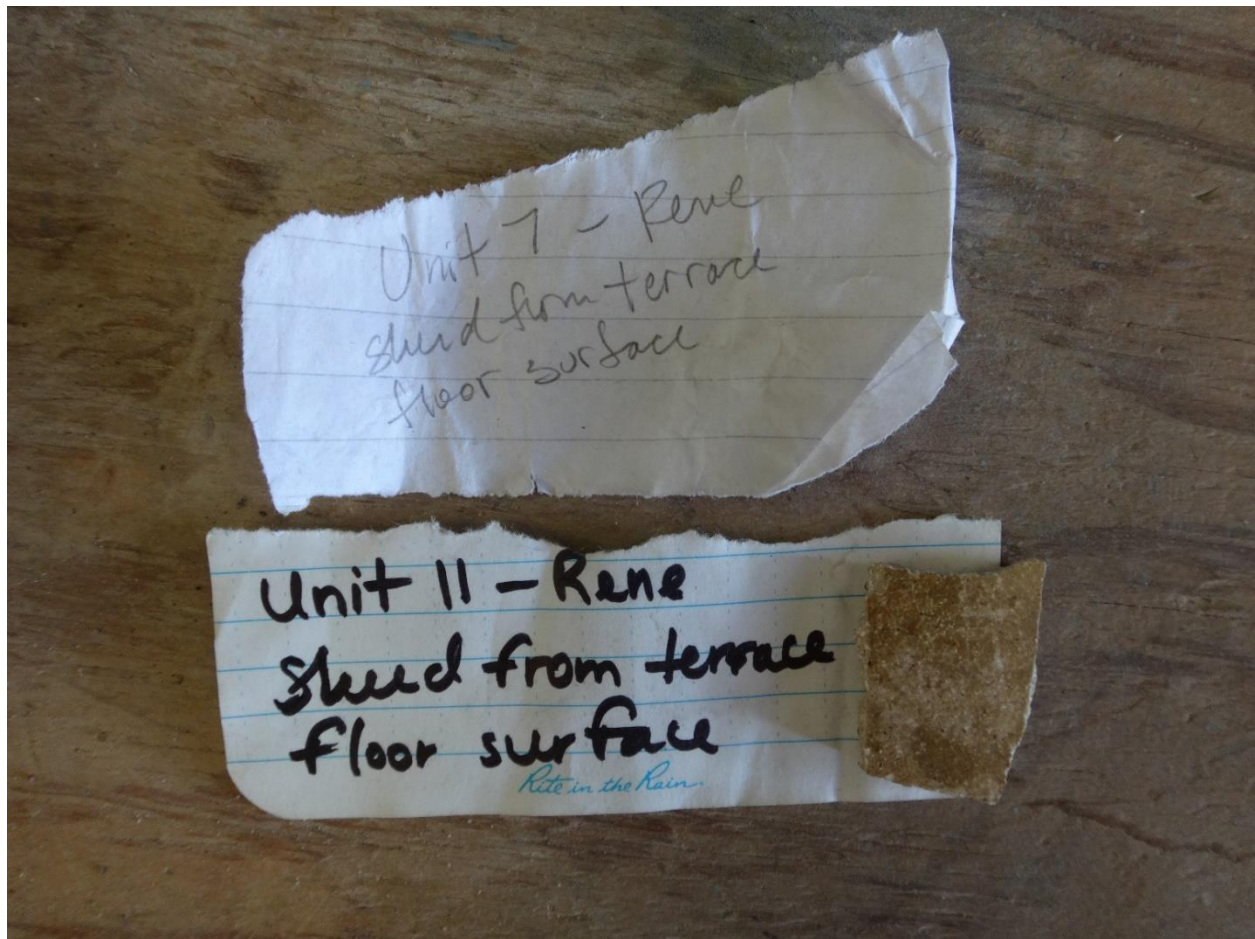 Unit 7 - Rene
sherd from terrace
floor surface
Unit 11 - Rene
sherd from terrace
floor surface
Rite in the Rain